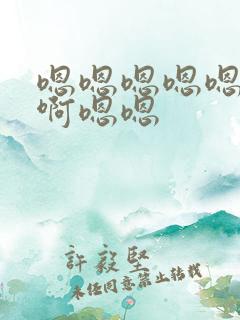 嗯嗯嗯嗯嗯
啊嗯嗯
許毅堅
未经同意禁止转载